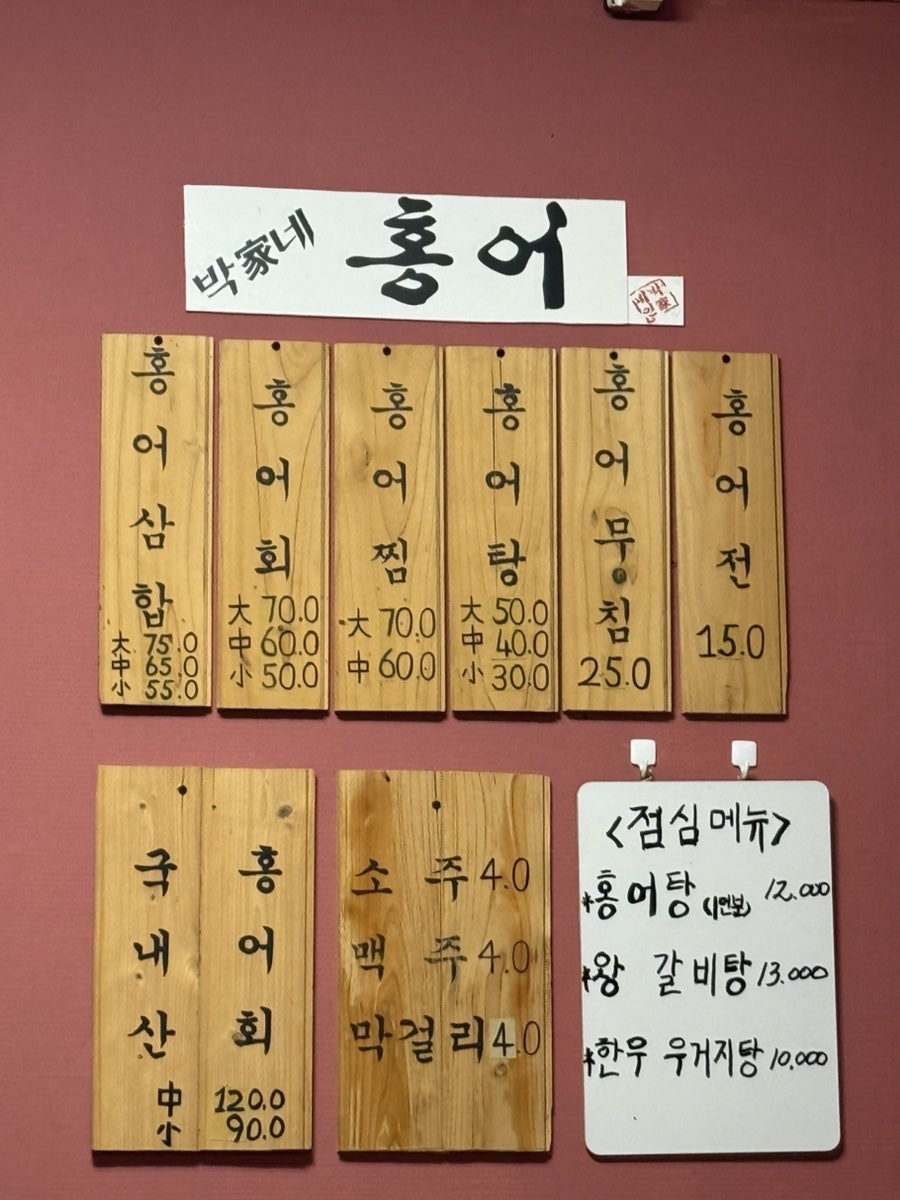 박家네 홍어
홍어삼합
大 75.0
中 65.0
小 55.0
홍어회
大 70.0
中 60.0
小 50.0
홍어찜
大 70.0
中 60.0
홍어탕
大 50.0
中 40.0
小 30.0
홍어무침
25.0
홍어전
15.0
국내산 홍어회
中 120.0
小 90.0
소주 4.0
맥주 4.0
막걸리 4.0
<점심메뉴>
*홍어탕 (1인분) 12.000
*왕 갈비탕 13.000
*한우 우거지탕 10.000